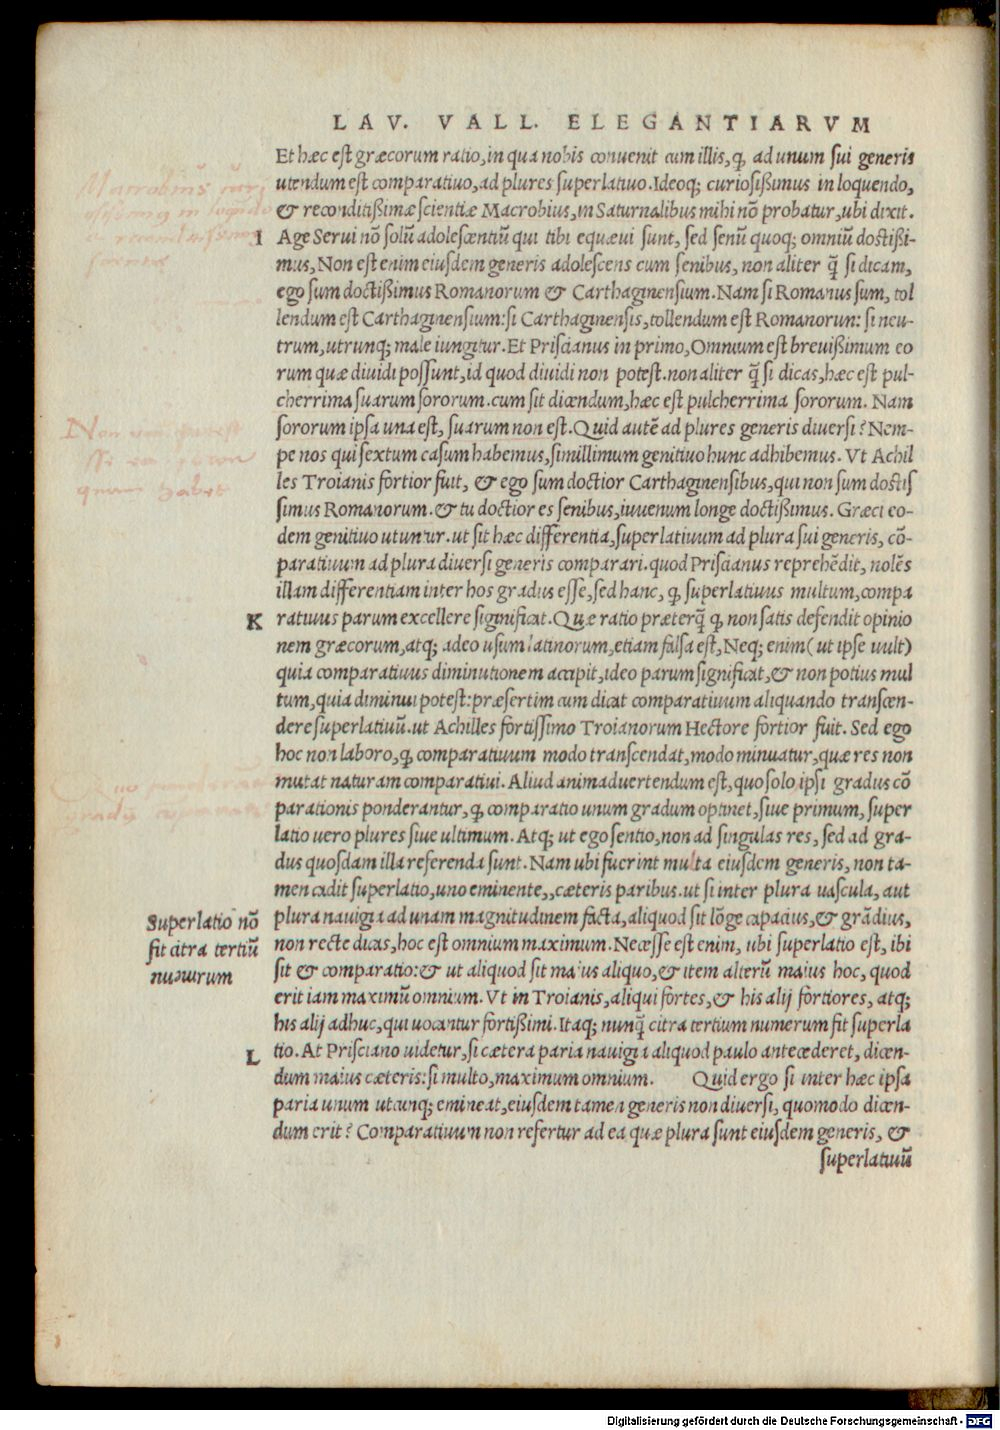 LAV. VALL. ELEGANTIARVM
Et hæc est græcorum ratio, in qua nobis conuenit cum illis, ꝙ ad unum sui generis
utendum est comparatiuo, ad plures superlatiuo. Ideoq; curiosißimus in loquendo,
& reconditißimæ scientiæ Macrobius, in Saturnalibus mihi nō probatur, ubi dixit.
I
Age Serui nō solū adolescentiū qui tibi equæui sunt, sed senū quoq; omniū doctißi-
mus, Non est enim eiusdem generis adolescens cum senibus, non aliter q̄ si dicam,
ego sum doctißimus Romanorum & Carthaginensium. Nam si Romanus sum, tol
lendum est Carthaginensium: si Carthaginensis, tollendum est Romanorun: si neu-
trum, utrunq; male iungitur. Et Priscianus in primo, Omnium est breuißimum eo
rum quæ diuidi possunt, id quod diuidi non potest. non aliter q̄ si dicas, hæc est pul-
cherrima suarum sororum. cum sit dicendum, hæc est pulcherrima sororum. Nam
sororum ipsa una est, suarum non est. Quid autē ad plures generis diuersi? Nem-
pe nos qui sextum casum habemus, simillimum genitiuo hunc adhibemus. Vt Achil
les Troianis fortior fuit, & ego sum doctior Carthaginensibus, qui non sum doctis
simus Romanorum. & tu doctior es senibus, iuuenum longe doctißimus. Græci eo-
dem genitiuo utuntur. ut sit hæc differentia, superlatiuum ad plura sui generis, cō-
paratiuum ad plura diuersi generis comparari. quod Priscianus reprehēdit, nolēs
illam differentiam inter hos gradus esse, sed hanc, ꝙ superlatiuus multum, compa
K
ratiuus parum excellere significat. Quæ ratio præterq̄ ꝙ non satis defendit opinio
nem græcorum, atq; adeo usum latinorum, etiam falsa est, Neq; enim (ut ipse uult)
quia comparatiuus diminutionem accipit, ideo parum significat, & non potius mul
tum, quia diminui potest: præsertim cum dicat comparatiuum aliquando transcen-
dere superlatiuū. ut Achilles fortissimo Troianorum Hectore fortior fuit. Sed ego
hoc non laboro, ꝙ comparatiuum modo transcendat, modo minuatur, quæ res non
mutat naturam comparatiui. Aliud animaduertendum est, quo solo ipsi gradus cō
parationis ponderantur, ꝙ comparatio unum gradum optinet, siue primum, super
latio uero plures siue ultimum. Atq; ut ego sentio, non ad singulas res, sed ad gra-
dus quosdam illa referenda sunt. Nam ubi fuerint multa eiusdem generis, non ta-
men cadit superlatio, uno eminente,, cæteris paribus. ut si inter plura uascula, aut
Superlatio nō
fit citra tertiū
numerum
plura nauigia ad unam magnitudinem facta, aliquod sit lōge capacius, & grādius,
non recte dicas, hoc est omnium maximum. Necesse est enim, ubi superlatio est, ibi
sit & comparatio: & ut aliquod sit maius aliquo, & item alterū maius hoc, quod
erit iam maximū omnium. Vt in Troianis, aliqui fortes, & his alij fortiores, atq;
his alij adhuc, qui uocantur fortißimi. Itaq; nunq̄ citra tertium numerum fit superla
L
tio. At Prisciano uidetur, si cætera paria nauigia aliquod paulo antecederet, dicen-
dum maius cæteris: si multo, maximum omnium. Quid ergo si inter hæc ipsa
paria unum utcunq; emineat, eiusdem tamen generis non diuersi, quomodo dicen-
dum erit? Comparatiuum non refertur ad ea quæ plura sunt eiusdem generis, &
superlatiuū
Digitalisierung gefördert durch die Deutsche Forschungsgemeinschaft - DFG